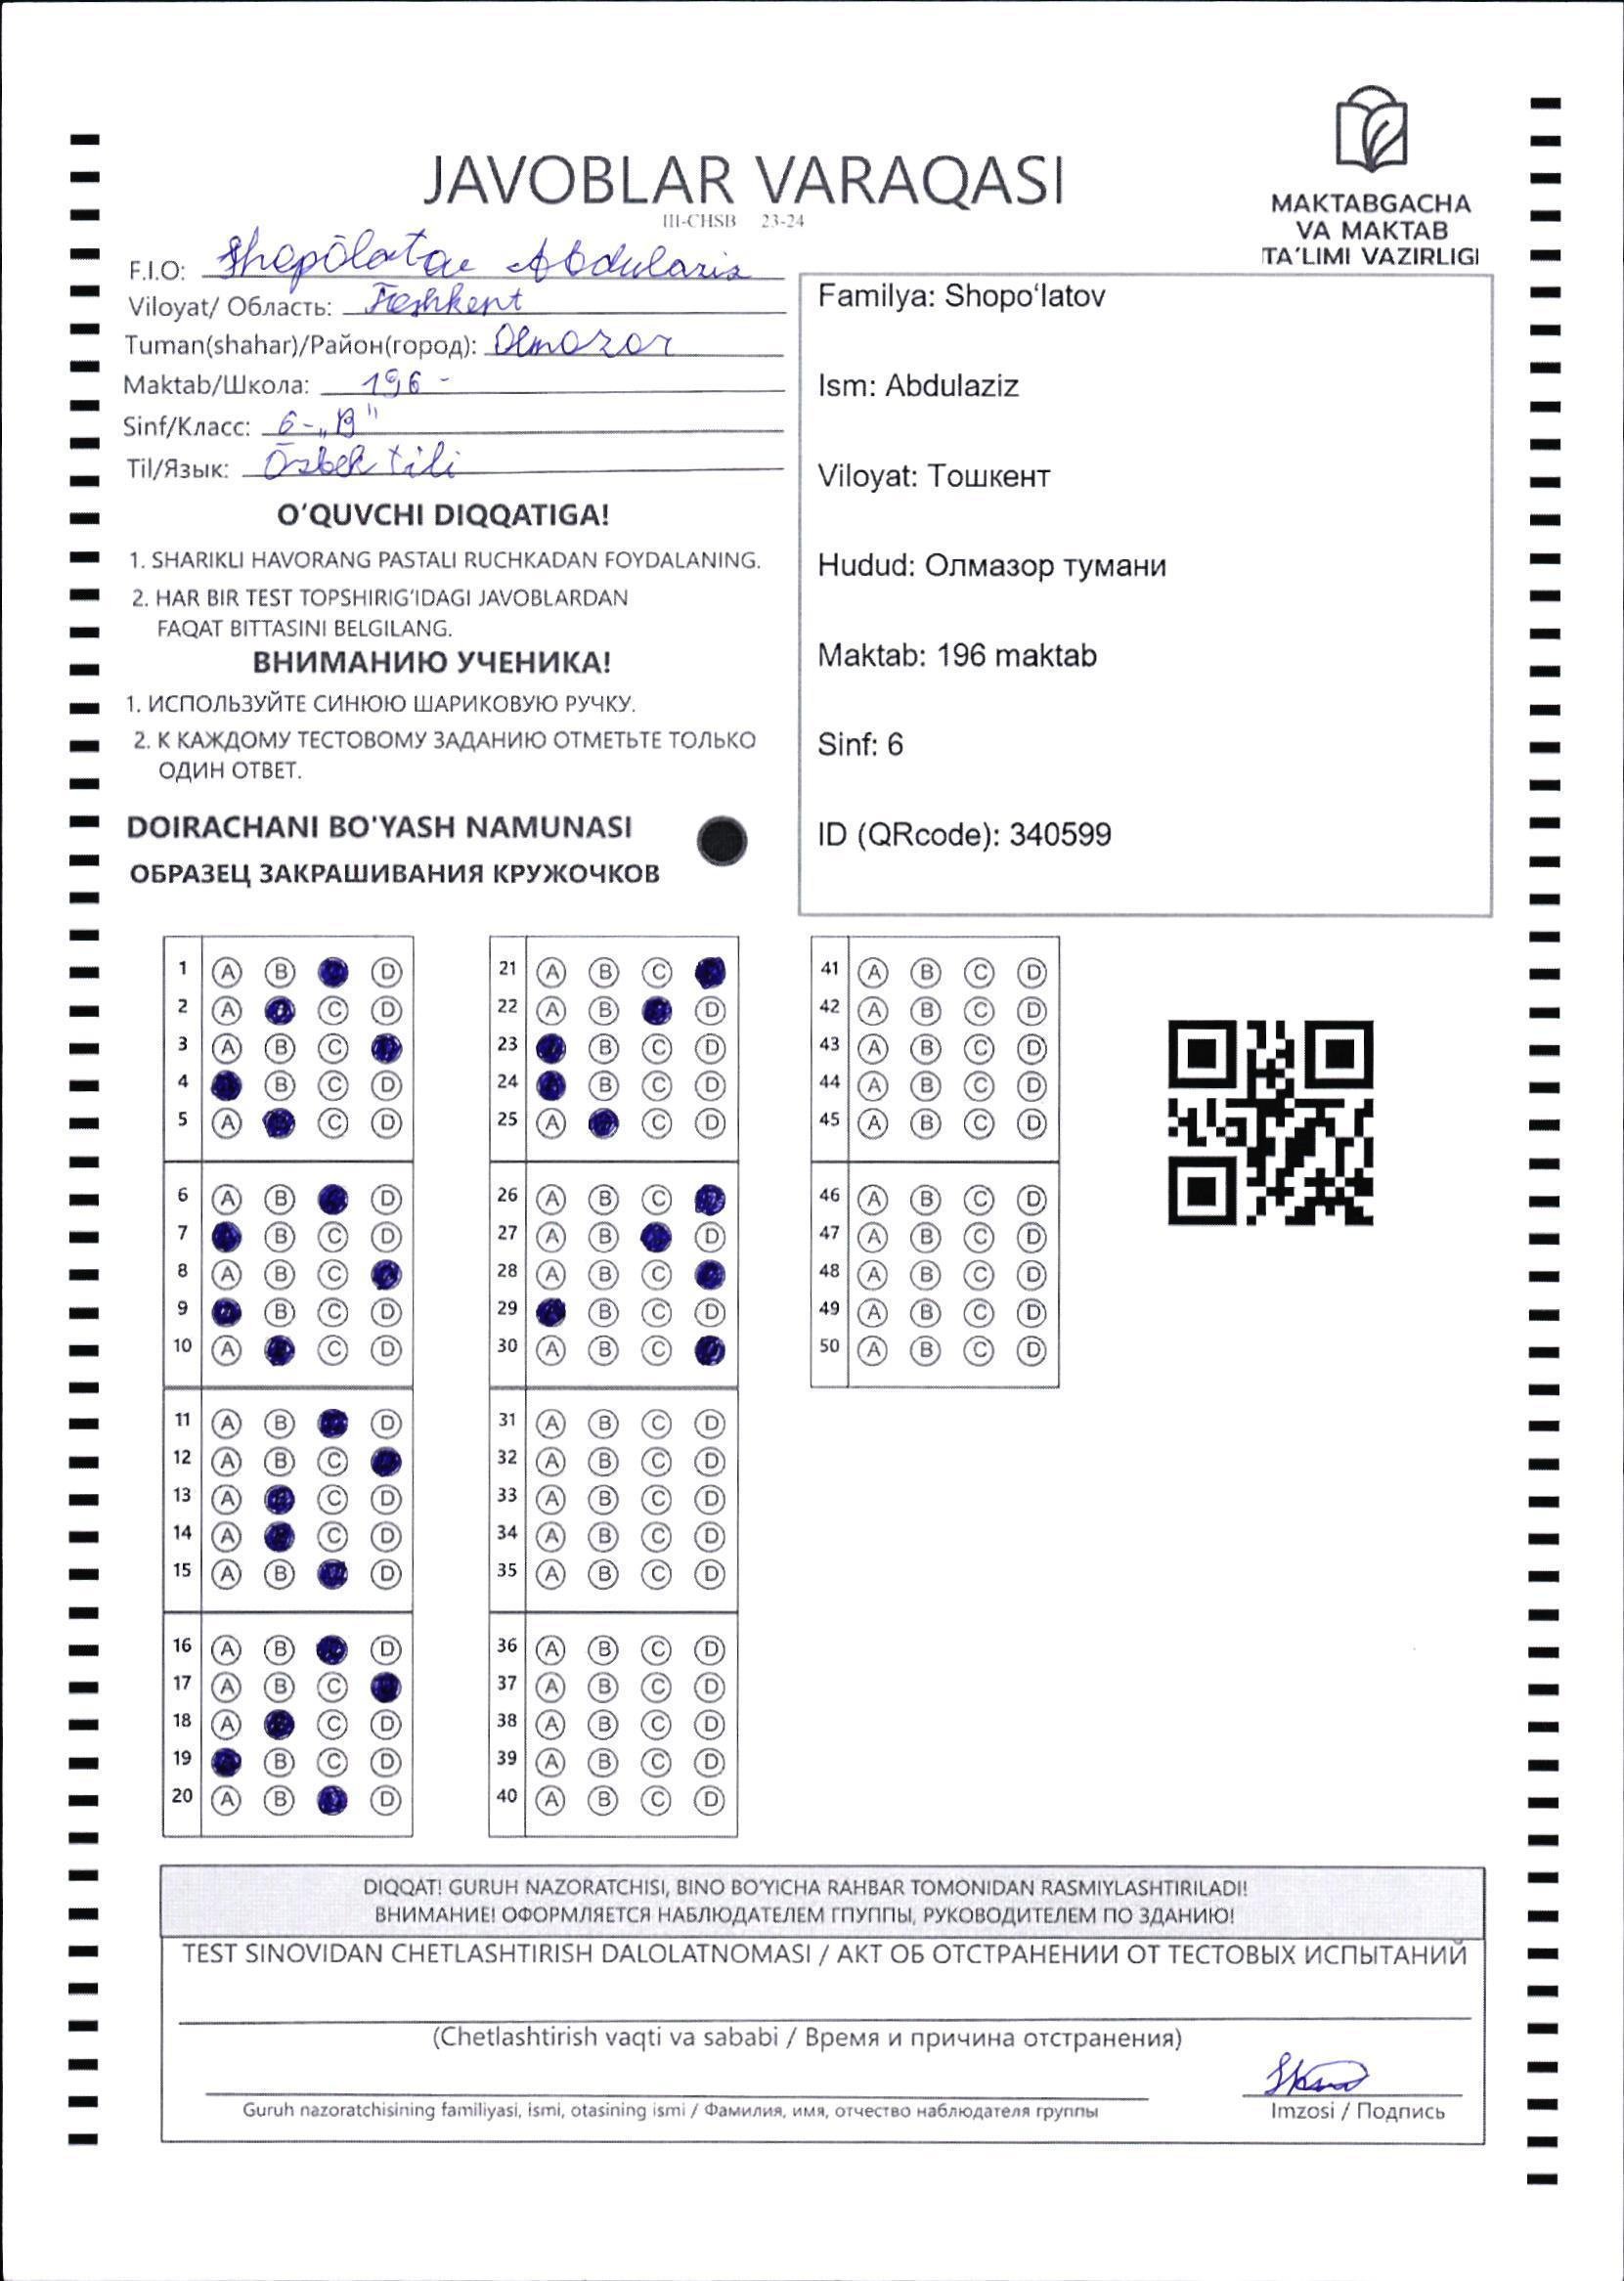 JAVOBLAR VARAQASI
III-CHSB 23-24
MAKTABGACHA
VA MAKTAB
TA'LIMI VAZIRLIGI
F.I.O: Shopōlatov Abdulaziz
Viloyat/ Область: Tashkent
Tuman(shahar)/Район(город): Olmazor
Maktab/Школа: 196 -
Sinf/Класс: 6-„B"
Til/Язык: Ōzbek tili
O'QUVCHI DIQQATIGA!
1. SHARIKLI HAVORANG PASTALI RUCHKADAN FOYDALANING.
2. HAR BIR TEST TOPSHIRIG'IDAGI JAVOBLARDAN
FAQAT BITTASINI BELGILANG.
ВНИМАНИЮ УЧЕНИКА!
1. ИСПОЛЬЗУЙТЕ СИНЮЮ ШАРИКОВУЮ РУЧКУ.
2. К КАЖДОМУ ТЕСТОВОМУ ЗАДАНИЮ ОТМЕТЬТЕ ТОЛЬКО
ОДИН ОТВЕТ.
DOIRACHANI BO'YASH NAMUNASI
ОБРАЗЕЦ ЗАКРАШИВАНИЯ КРУЖОЧКОВ
Familya: Shopo'latov
Ism: Abdulaziz
Viloyat: Тошкент
Hudud: Олмазор тумани
Maktab: 196 maktab
Sinf: 6
ID (QRcode): 340599
1 A B D
2 A C D
3 A B C
4 B C D
5 A C D
6 A B D
7 B C D
8 A B C
9 B C D
10 A C D
11 A B D
12 A B C
13 A C D
14 A C D
15 A B D
16 A B D
17 A B C
18 A C D
19 B C D
20 A B D
21 A B C
22 A B D
23 B C D
24 B C D
25 A C D
26 A B C
27 A B D
28 A B C
29 B C D
30 A B C
31 A B C D
32 A B C D
33 A B C D
34 A B C D
35 A B C D
36 A B C D
37 A B C D
38 A B C D
39 A B C D
40 A B C D
41 A B C D
42 A B C D
43 A B C D
44 A B C D
45 A B C D
46 A B C D
47 A B C D
48 A B C D
49 A B C D
50 A B C D
DIQQAT! GURUH NAZORATCHISI, BINO BO'YICHA RAHBAR TOMONIDAN RASMIYLASHTIRILADI!
ВНИМАНИЕ! ОФОРМЛЯЕТСЯ НАБЛЮДАТЕЛЕМ ГПУППЫ, РУКОВОДИТЕЛЕМ ПО ЗДАНИЮ!
TEST SINOVIDAN CHETLASHTIRISH DALOLATNOMASI / АКТ ОБ ОТСТРАНЕНИИ ОТ ТЕСТОВЫХ ИСПЫТАНИЙ
(Chetlashtirish vaqti va sababi / Время и причина отстранения)
Guruh nazoratchisining familiyasi, ismi, otasining ismi / Фамилия, имя, отчество наблюдателя группы
Imzosi / Подпись